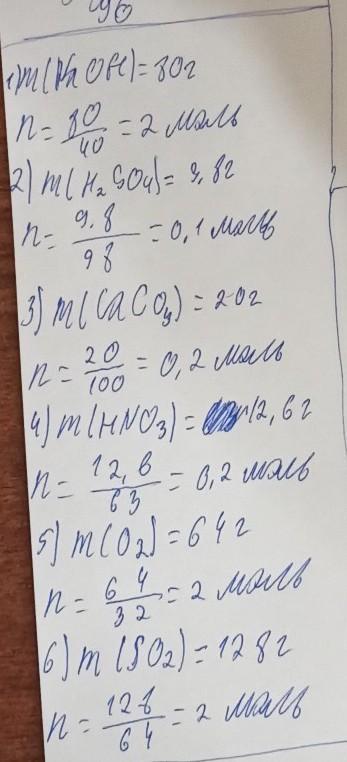 1) m(NaOH)=80г
n=80/40=2 моль
2) m(H₂SO₄)=9,8г
n=9.8/98=0,1 моль
3) m(CaCO₃)=20г
n=20/100=0,2 моль
4) m(HNO₃)=12,6г
n=12,6/63=0,2 моль
5) m(O₂)=64г
n=64/32=2 моль
6) m(SO₂)=128г
n=128/64=2 моль